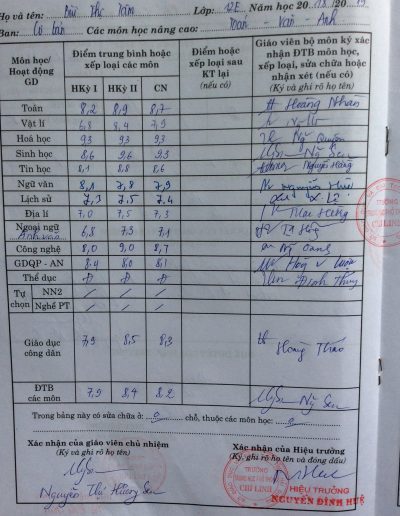 Họ và tên: Bùi Thị Kim Lớp: 12E Năm học 20 18 - 20 19
Ban: Cơ bản Các môn học nâng cao: Toán - Văn - Anh
Môn học/ Hoạt động GD
Điểm trung bình hoặc xếp loại các môn
Điểm hoặc xếp loại sau KT lại (nếu có)
Giáo viên bộ môn ký xác nhận ĐTB môn học, xếp loại, sửa chữa hoặc nhận xét (nếu có)
(Ký và ghi rõ họ tên)
HKỳ I HKỳ II CN
Toán 8,2 8,9 8,7 Hoàng Nhàn
Vật lí 6,8 8,4 7,9
Hoá học 9,3 9,3 9,3 Ng Quyên
Sinh học 8,6 9,6 9,3 Ng Sen
Tin học 8,1 8,8 8,6 Nguyễn Hằng
Ngữ văn 8,1 7,8 7,9 Nguyễn
Lịch sử 7,3 7,5 7,4
Địa lí 7,0 7,5 7,3
Ngoại ngữ Anh văn 6,8 7,3 7,1
Công nghệ 8,0 9,0 8,7
GDQP - AN 8,4 8,0 8,1
Thể dục Đ Đ Đ Đinh
Tự chọn
NN2
Nghề PT
Giáo dục công dân 7,9 8,5 8,3 Hoàng Thảo
ĐTB các môn 7,9 8,4 8,2 Ng Sen
Trong bảng này có sửa chữa ở: 0 chỗ, thuộc các môn học: 0
Xác nhận của giáo viên chủ nhiệm
(Ký, ghi rõ họ tên)
Nguyễn Thị Hương Sen
Xác nhận của Hiệu trưởng
(Ký, ghi rõ họ tên và đóng dấu)
TRƯỜNG
CHÍ LINH
HIỆU TRƯỞNG
NGUYỄN ĐÌNH HUỆ